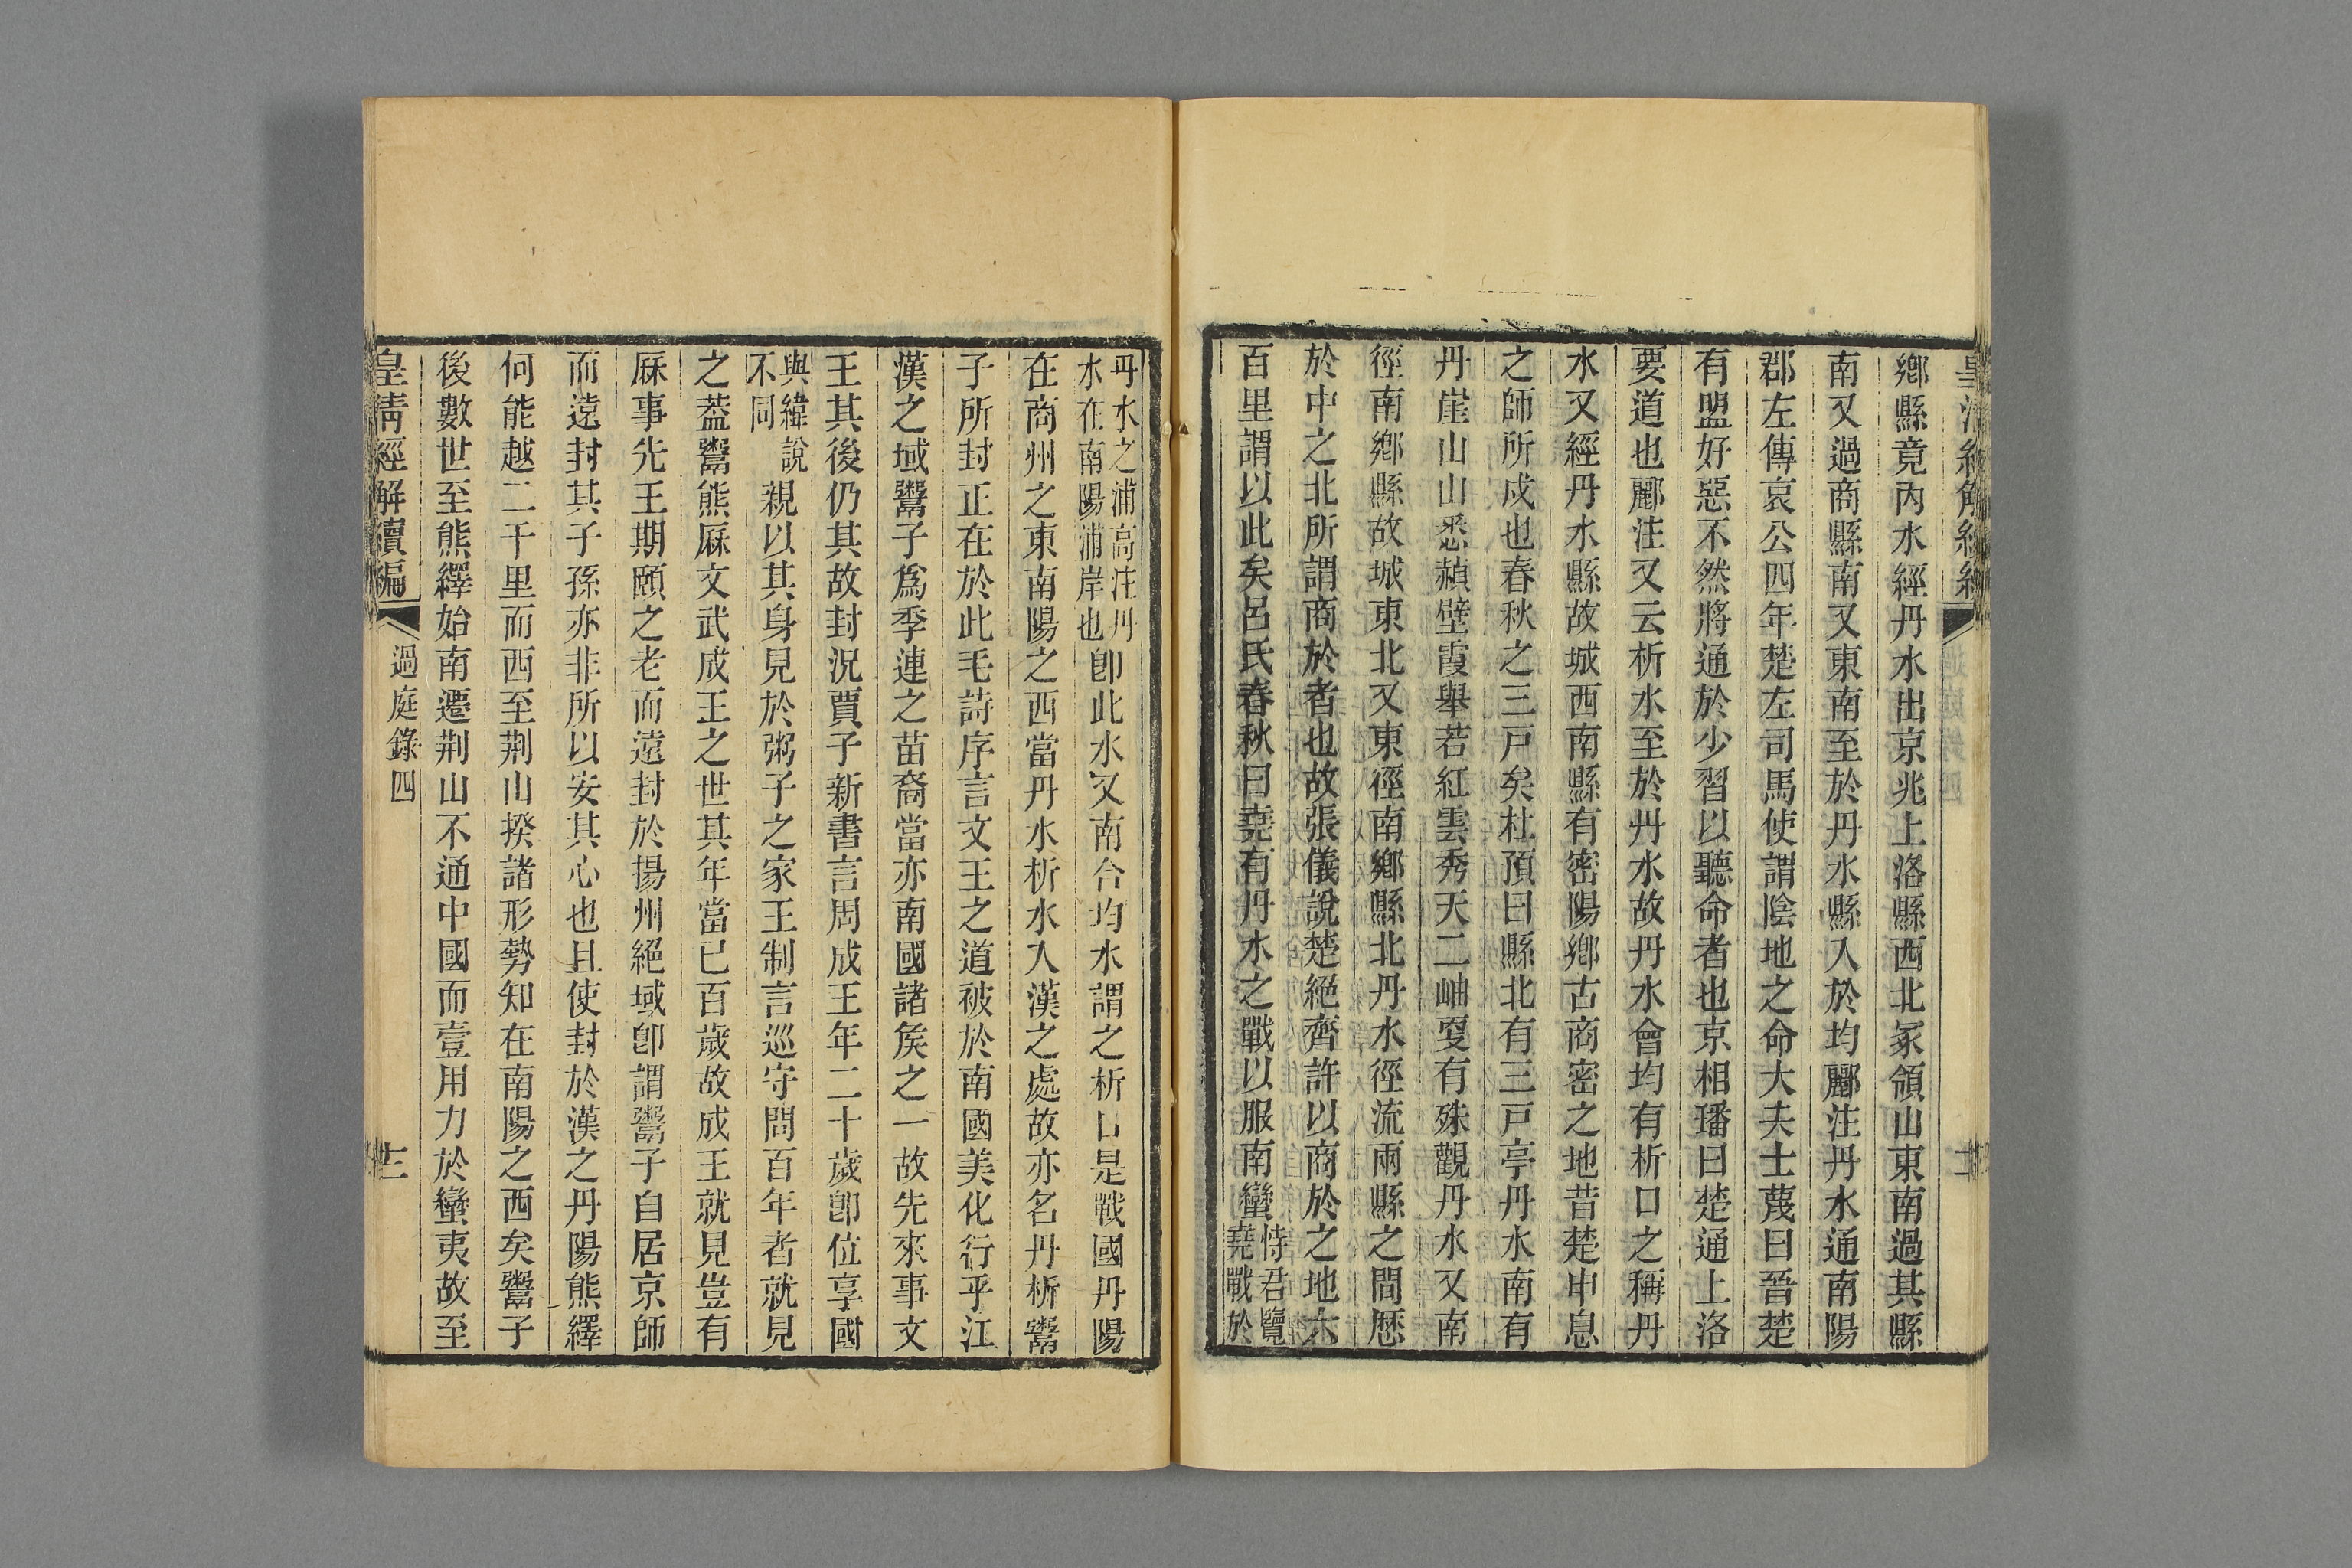 鄉縣竟內水經丹水出京兆上洛縣西北冢領山東南過其縣
南又過商縣南又東南至於丹水縣入於均酈注丹水通南陽
郡左傳哀公四年楚左司馬使謂陰地之命大夫士蔑曰晉楚
有盟好惡不然將通於少習以聽命者也京相璠曰楚通上洛
要道也酈注又云析水至於丹水故丹水會均有析口之稱丹
水又經丹水縣故城西南縣有密陽鄉古商密之地昔楚申息
之師所戍也春秋之三戸矣杜預曰縣北有三戸亭丹水南有
丹崖山山悉赬壁霞舉若紅雲秀天二岫更有殊觀丹水又南
徑南鄉縣故城東北又東徑南鄉縣北丹水徑流兩縣之間歷
於中之北所謂商於者也故張儀說楚絕齊許以商於之地六
百里謂以此矣呂氏春秋曰堯有丹水之戰以服南蠻恃君覽堯戰於
丹水之浦高注丹水在南陽浦岸也卽此水又南合均水謂之析口是戰國丹陽
在商州之東南陽之西當丹水析水入漢之處故亦名丹析鬻
子所封正在於此毛詩序言文王之道被於南國美化行乎江
漢之域鬻子爲季連之苗裔當亦南國諸矦之一故先來事文
王其後仍其故封況賈子新書言周成王年二十歲卽位享國
與緯說不同親以其身見於粥子之家王制言巡守問百年者就見
之葢鬻熊厤文武成王之世其年當已百歲故成王就見豈有
厤事先王期頤之老而遠封於揚州絕域卽謂鬻子自居京師
而遠封其子孫亦非所以安其心也且使封於漢之丹陽熊繹
何能越二千里而西至荆山揆諸形勢知在南陽之西矣鬻子
後數世至熊繹始南遷荆山不通中國而壹用力於蠻夷故至
皇清經解續編 過庭錄四 十三